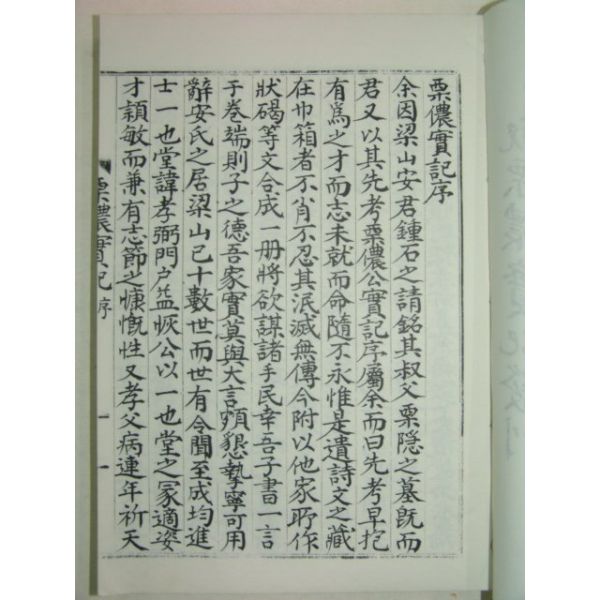 栗儂實記序
余因梁山安君鍾石之請銘其叔父栗隱之墓旣而
君又以其先考栗儂公實記序屬余而曰先考早抱
有爲之才而志未就而命隨不永惟是遺詩文之藏
在巾箱者不肖不忍其泯滅無傳今附以他家所作
狀碣等文合成一册將欲謀諸手民幸吾子書一言
于卷端則子之德吾家實莫與大言頗懇摯寧可用
辭安氏之居梁山已十數世而世有令聞至成均進
士一也堂諱孝弼門戶益恢公以一也堂之冢適姿
才穎敏而兼有志節之慷慨性又孝父病連年祈天
栗儂實記 序 一